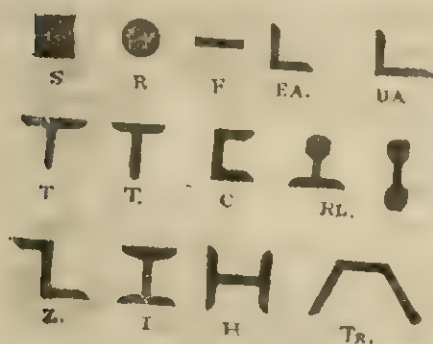 S R F EA. UA
T T. C RL.
Z. I H TR.